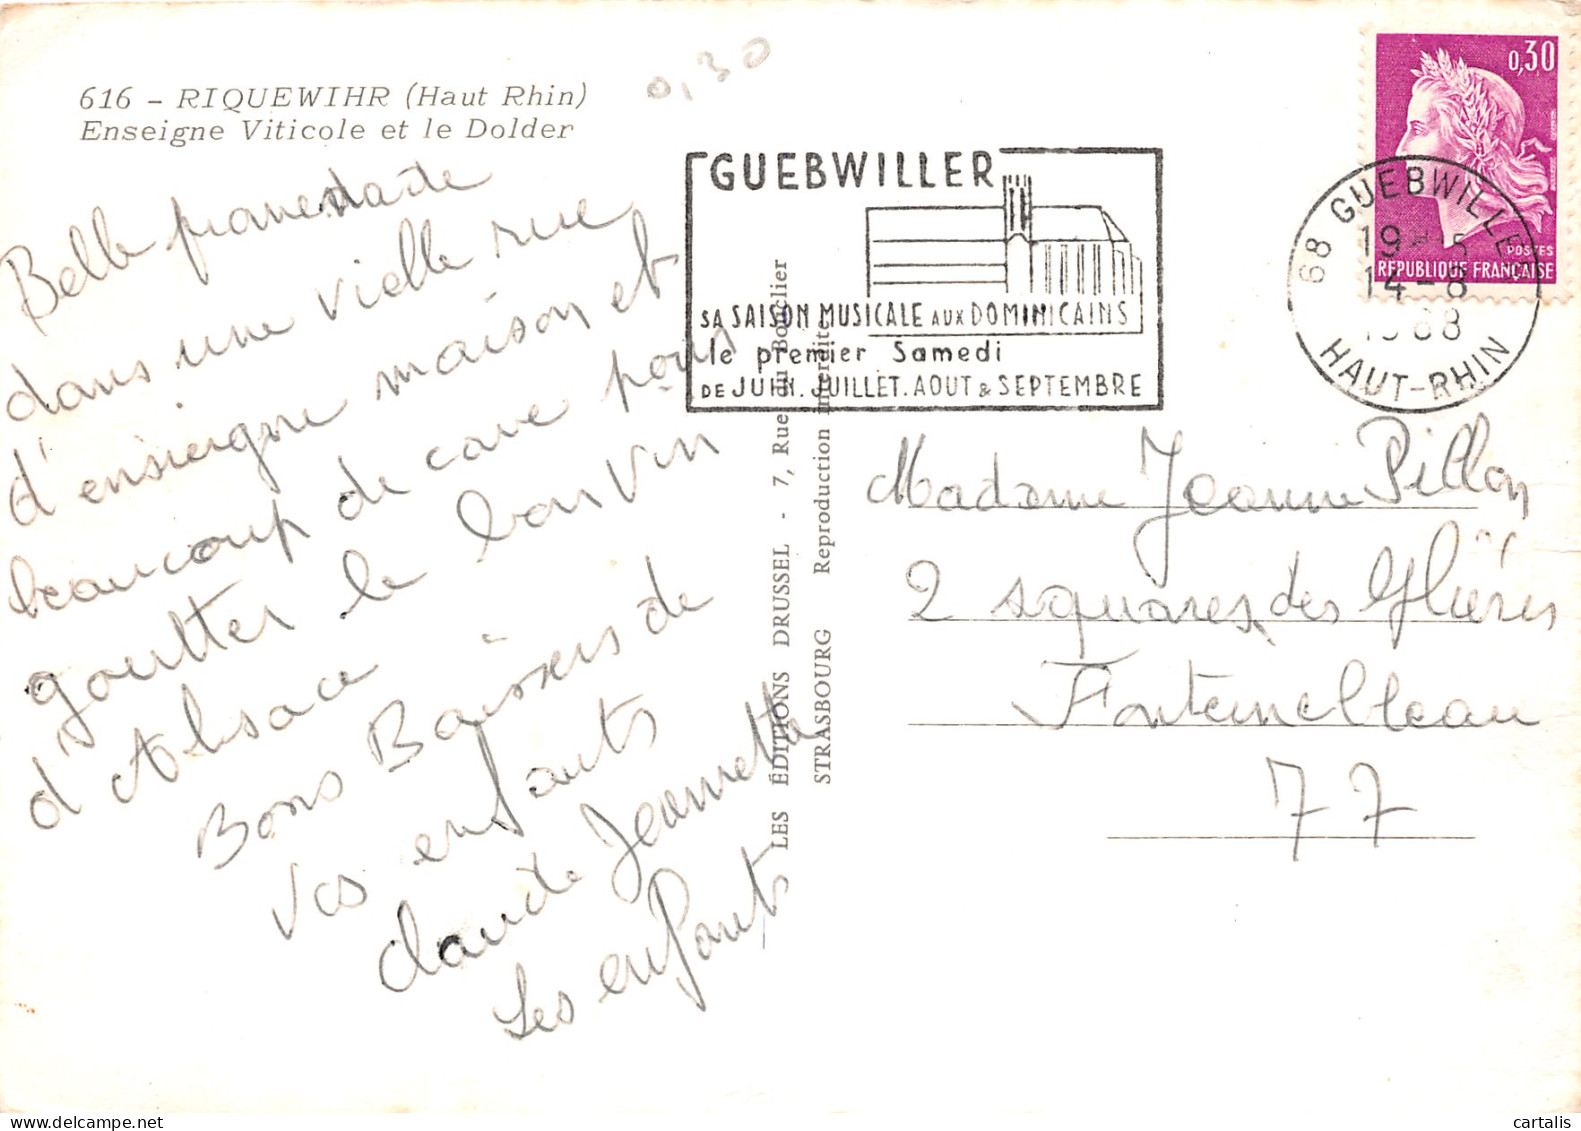 616 - RIQUEWIHR (Haut Rhin)
Enseigne Viticole et le Dolder
0,30
Belle promenade
dans une vielle rue
d'ensiegne maison et
beaucoup de cave pour
goutter le bon vin
d'Alsace
Bons Baisers de
vos enfants
claude Jeannette
Les enfants
GUEBWILLER
SA SAISON MUSICALE AUX DOMINICAINS
le premier Samedi
DE JUIN. JUILLET. AOUT & SEPTEMBRE
LES ÉDITIONS DRUSSEL - 7, Rue du Bouclier
STRASBOURG Reproduction interdite
0,30
POSTES
REPUBLIQUE FRANÇAISE
68 GUEBWILLER
14-8
HAUT-RHIN
Madame Jeanne Pillon
2 squares des Glières
Fontainebleau
77
cartalis